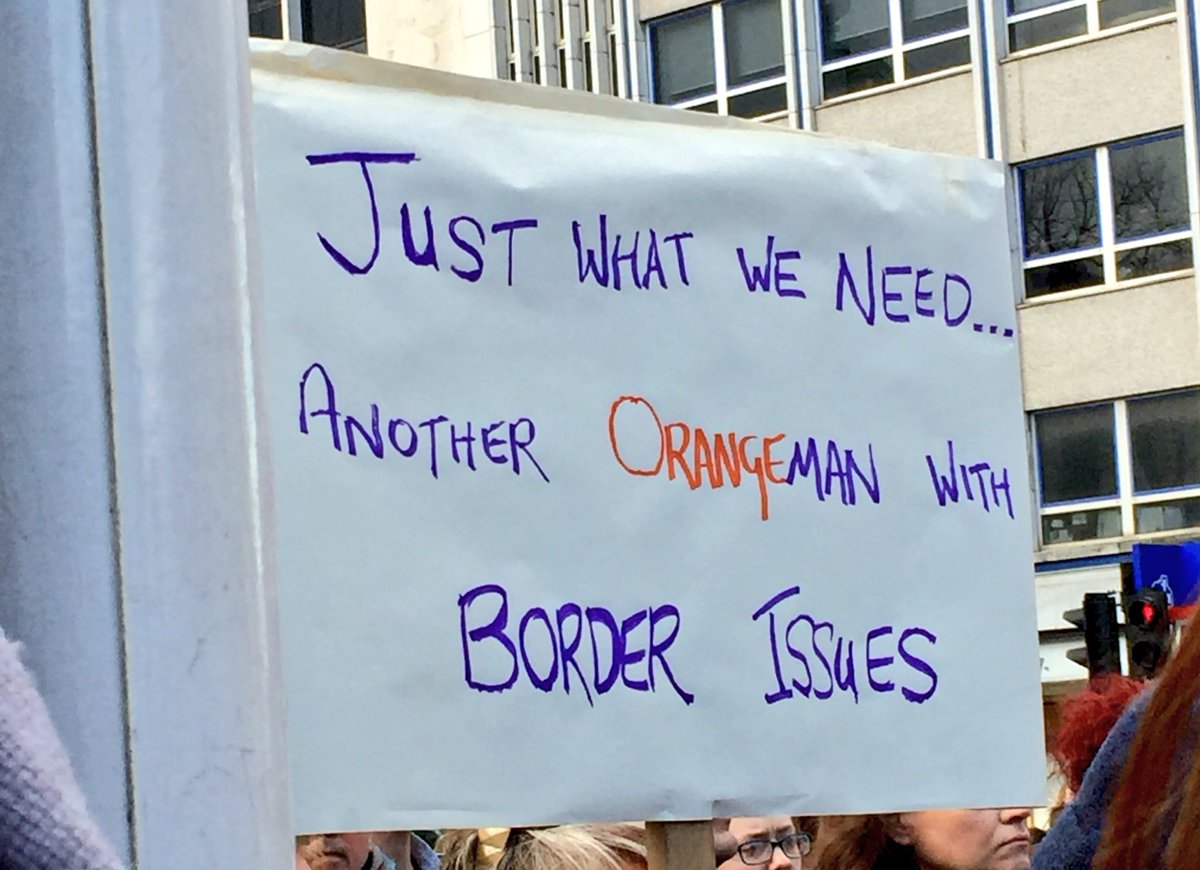 JUST WHAT WE NEED...
ANOTHER ORANGEMAN WITH
BORDER ISSUES